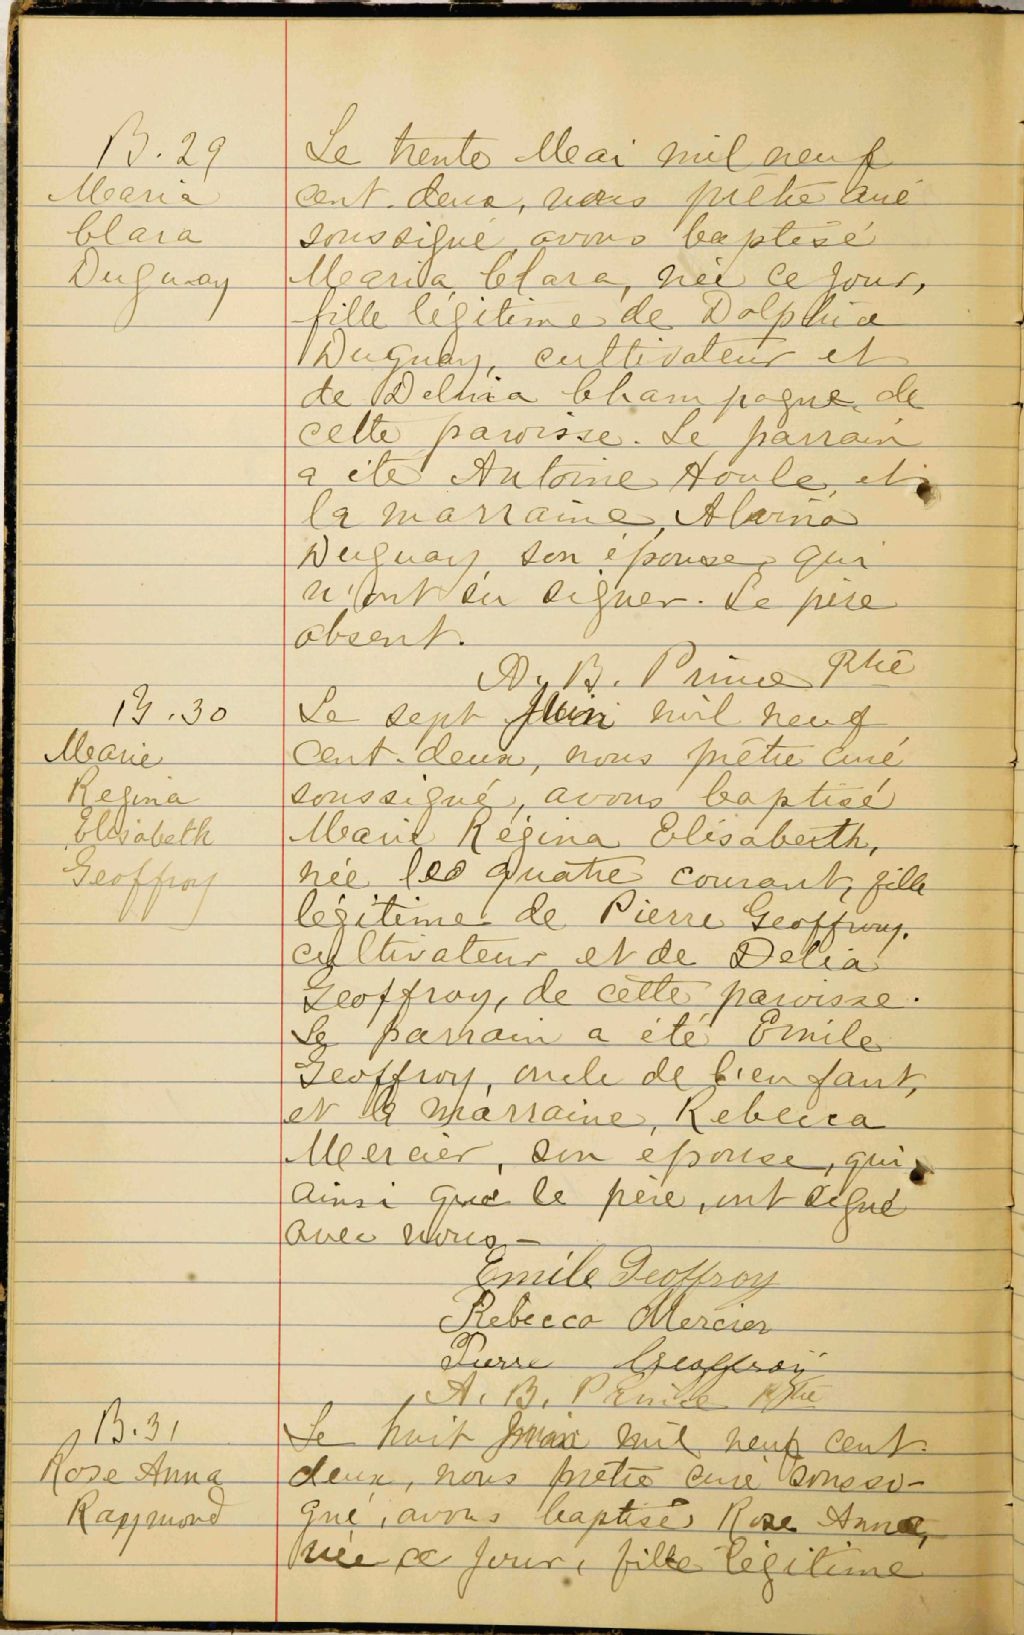 B. 29
Maria
Clara
Duguay
Le trente Mai mil neuf
cent-deux, nous prêtre curé
soussigné avons baptisé
Maria Clara, née ce jour,
fille légitime de Dolphia
Duguay, cultivateur et
de Delvia Champagne de
cette paroisse. Le parrain
a été Antoine Houle, et
la marraine, Alvina
Duguay son épouse, qui
n'ont su signer. Le père
absent.
A. B. Prince Ptre
B. 30
Marie
Regina
Elisabeth
Geoffroy
Le sept Juin mil neuf
cent-deux, nous prêtre curé
soussigné, avons baptisé
Marie Régina Elisabeth,
née le quatre courant, fille
légitime de Pierre Geoffroy,
cultivateur et de Delia
Geoffroy, de cette paroisse.
Le parrain a été Emile
Geoffroy, oncle de l'enfant,
et la marraine, Rebecca
Mercier, son épouse, qui,
ainsi que le père, ont signé
avec nous –
Emile Geoffroy
Rebecca Mercier
Pierre Geoffroy
A. B. Prince Ptre
B. 31
Rose Anna
Raymond
Le huit Juin mil neuf cent-
deux, nous prêtre curé soussi-
gné, avons baptisé Rose Anna,
née ce jour, fille légitime